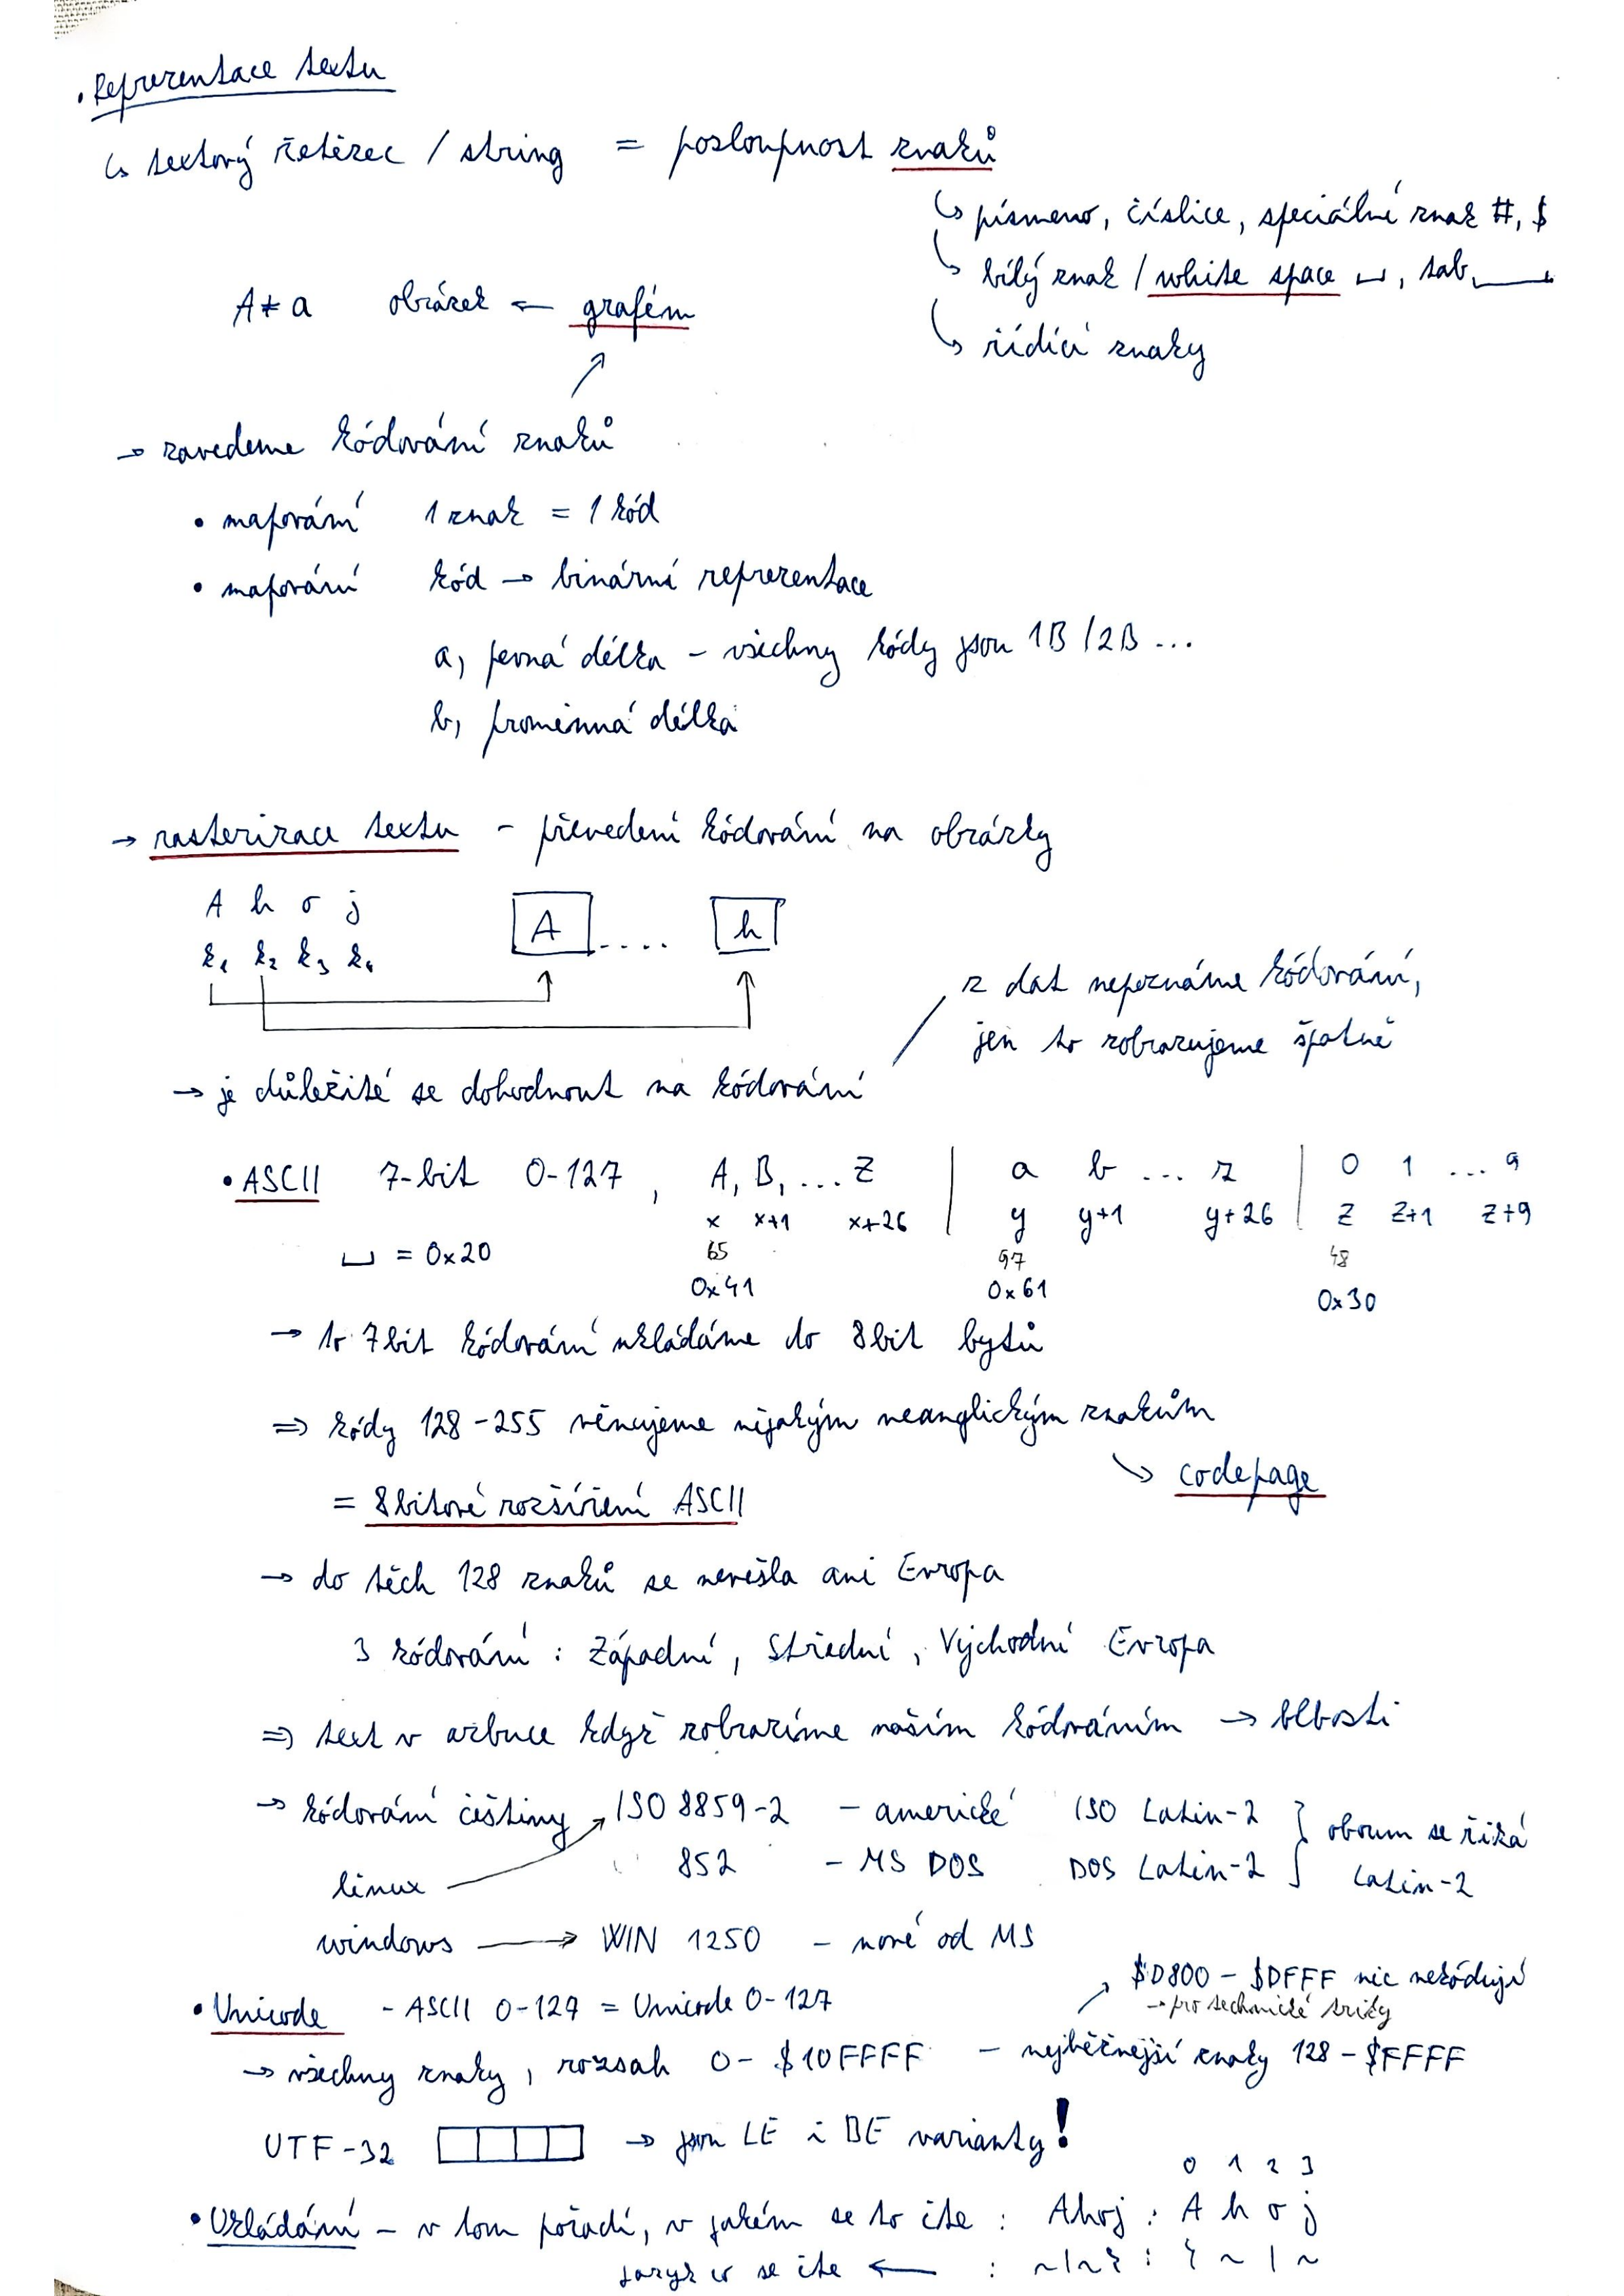 • Reprezentace textu
↳ textový řetězec / string = posloupnost znaků
↳ písmeno, číslice, speciální znak #, $
↳ bílý znak / white space ␣, tab
A ≠ a obrázek ← grafém
↳ řídící znaky
→ zavedeme kódování znaků
• mapování 1 znak = 1 kód
• mapování kód → binární reprezentace
a, pevná délka - všechny kódy jsou 1B / 2B ...
b, proměnná délka
→ rasterizace textu - převedení kódování na obrázky
A h o j A .... h
k1 k2 k3 k4
z dat nepoznáme kódování,
jen to zobrazujeme špatně
→ je důležité se dohodnout na kódování
• ASCII 7-bit 0-127, A, B, ... Z | a b ... z | 0 1 ... 9
x x+1 x+26 | y y+1 y+26 | z z+1 z+9
␣ = 0x20 65 97 48
0x41 0x61 0x30
→ to 7bit kódování ukládáme do 8bit bytů
⇒ kódy 128-255 věnujeme nějakým neanglickým znakům
↘ codepage
= 8bitové rozšíření ASCII
→ do těch 128 znaků se nevešla ani Evropa
3 kódování : Západní, Střední, Východní Evropa
⇒ text v azbuce když zobrazíme naším kódováním → blbosti
→ kódování češtiny ISO 8859-2 - americké ISO Latin-2 } oboum se říká
852 - MS DOS DOS Latin-2 } Latin-2
linux
windows → WIN 1250 - nové od MS
$D800 - $DFFF nic nekódují
→ pro technické triky
• Unicode - ASCII 0-127 = Unicode 0-127
→ všechny znaky, rozsah 0- $10FFFF - nejběžnější znaky 128 - $FFFF
UTF-32 → jsou LE i BE varianty!
0 1 2 3
• Ukládání - v tom pořadí, v jakém se to čte : Ahoj : A h o j
jazyk co se čte ← :